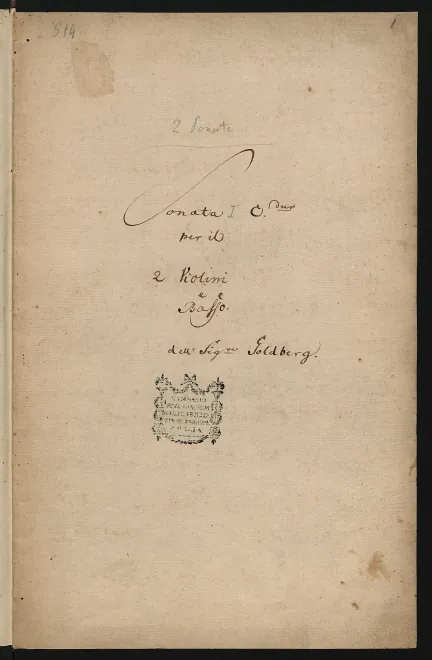 514
1
2 Sonate
Sonata I C. dur
per il
2 Violini
e
Basso.
dell Sigre Goldberg.